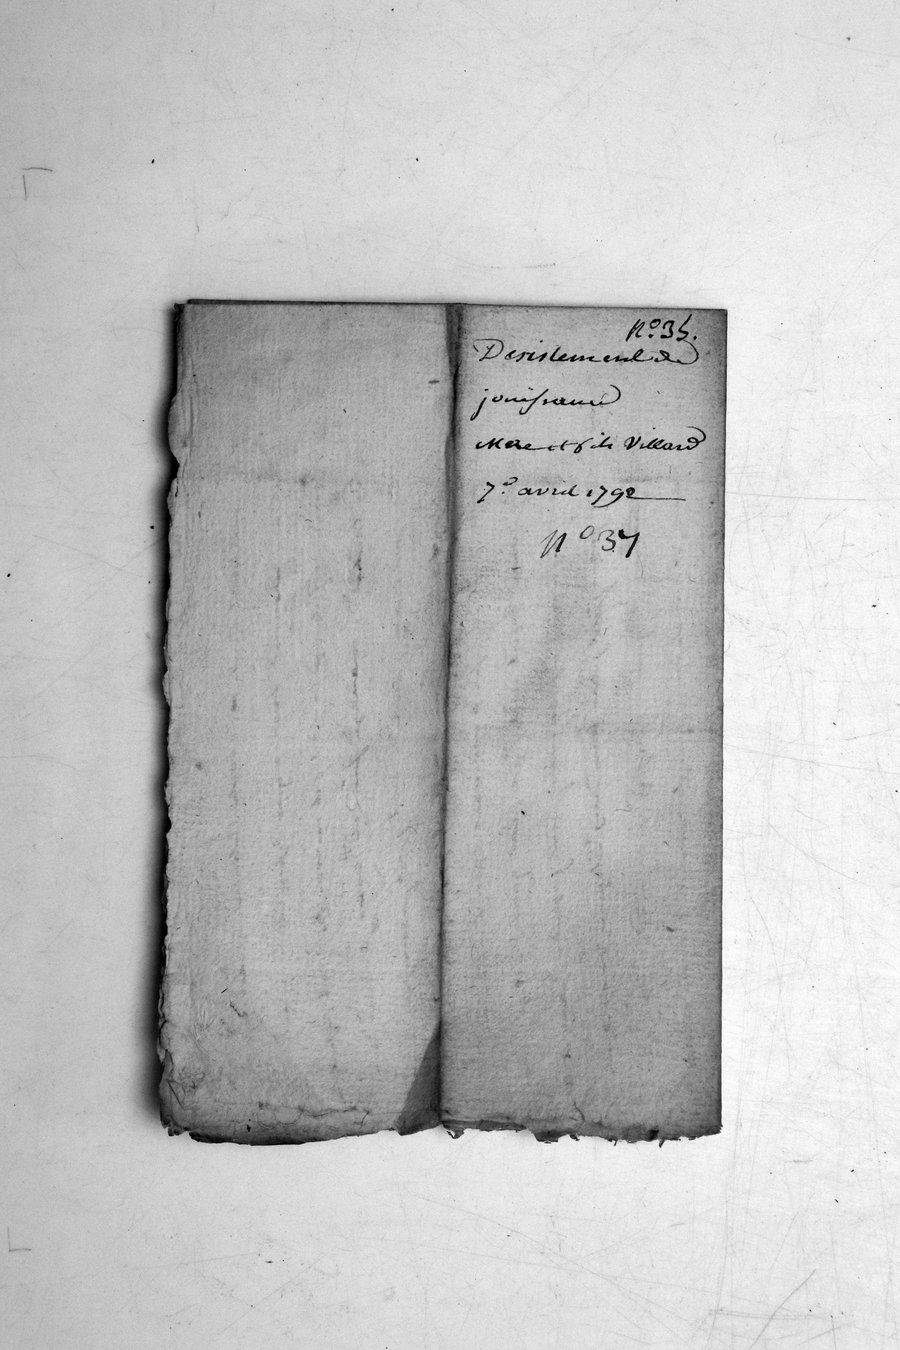 N.º 35.
Desistement de
jouissance
Mere et fils Villard
7.e avril 1792
N.º 37